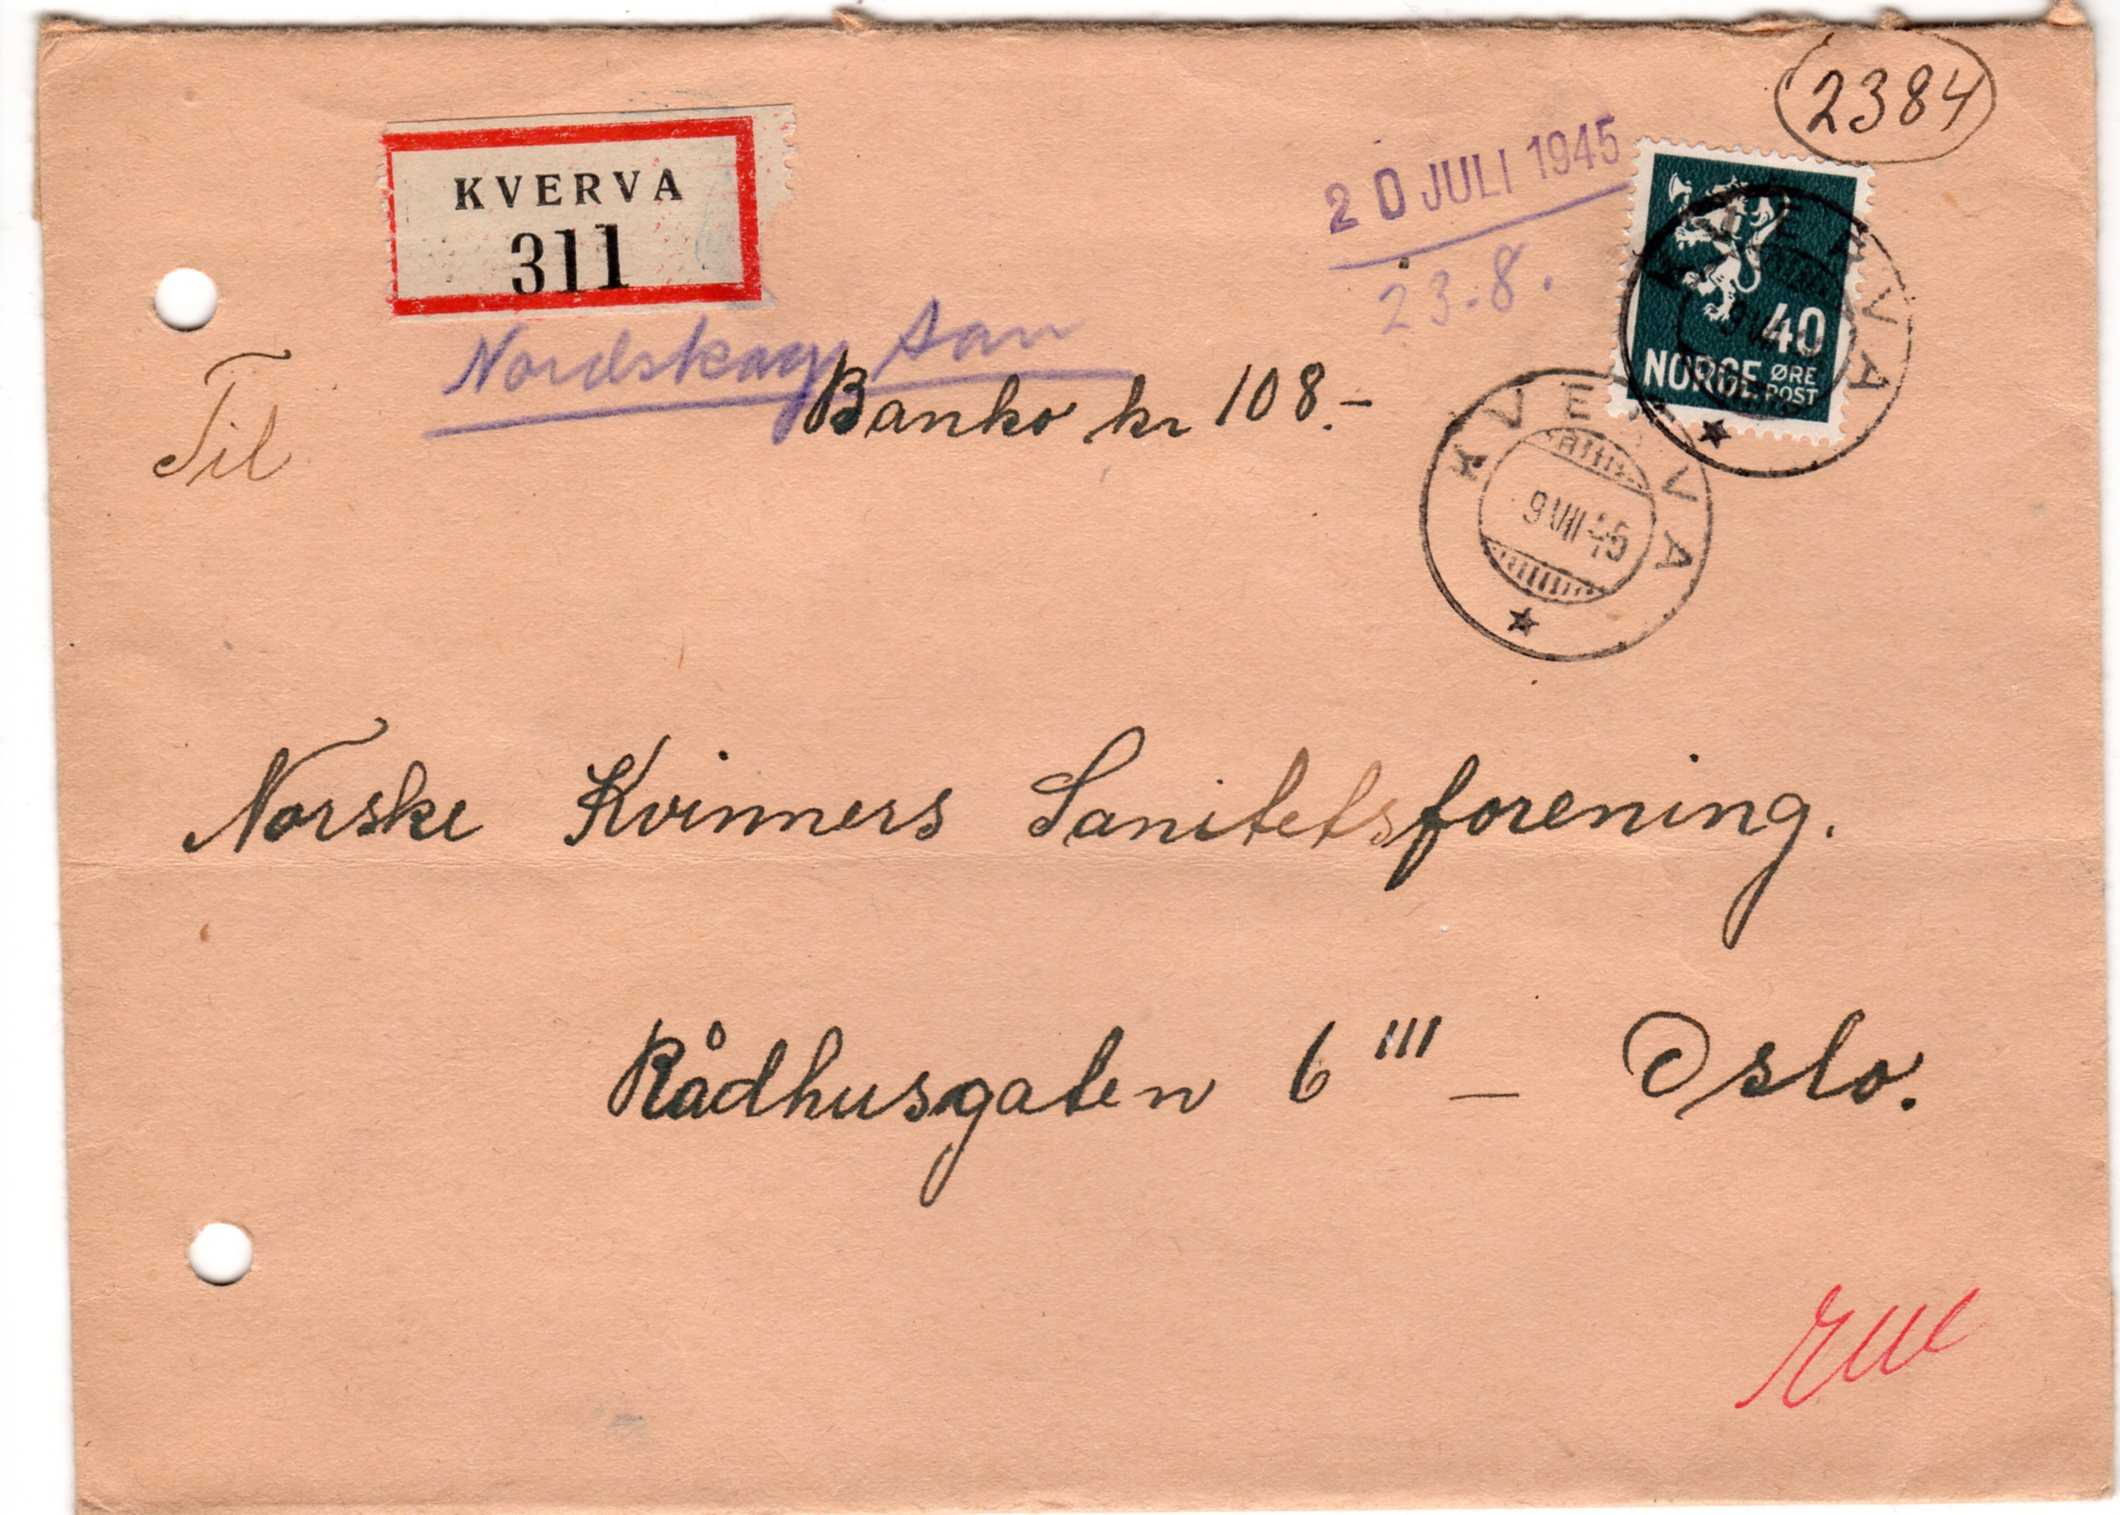 2384
KVERVA
311
20 JULI 1945
23.8.
40
NORGE ØRE
POST
KVERVA
Nordskag San
Banko kr 108.-
Til
KVERVA
9 VIII 45
Norske Kvinners Sanitetsforening.
Rådhusgaten 6 III – Oslo.